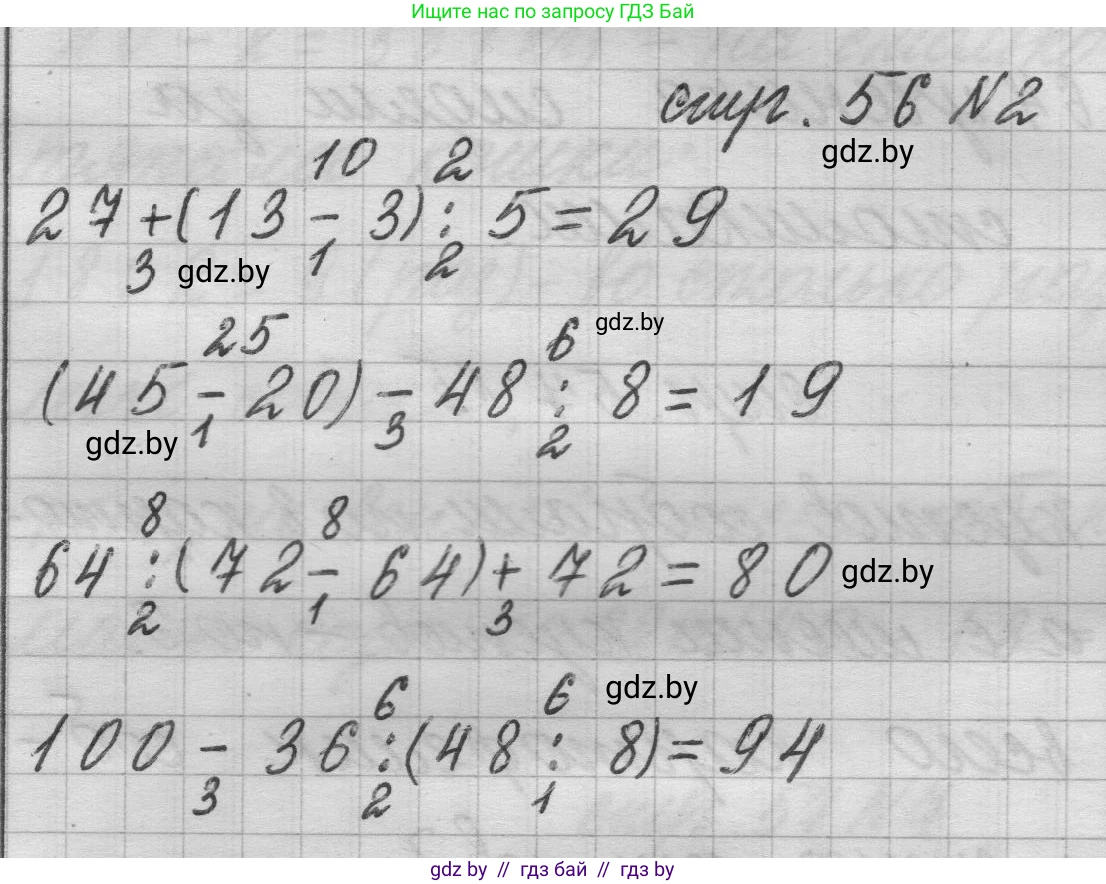 Ищите нас по запросу ГДЗ Бай
стр. 56 №2
gdz.by
10 2
27+(13-3):5=29
3 gdz.by 1 2
25 6 gdz.by
(45-20)-48:8=19
gdz.by 1 3 2
8 8
64:(72-64)+72=80 gdz.by
2 1 3
6 6 gdz.by
100-36:(48:8)=94
3 2 1
gdz.by // гдз бай // гдз by